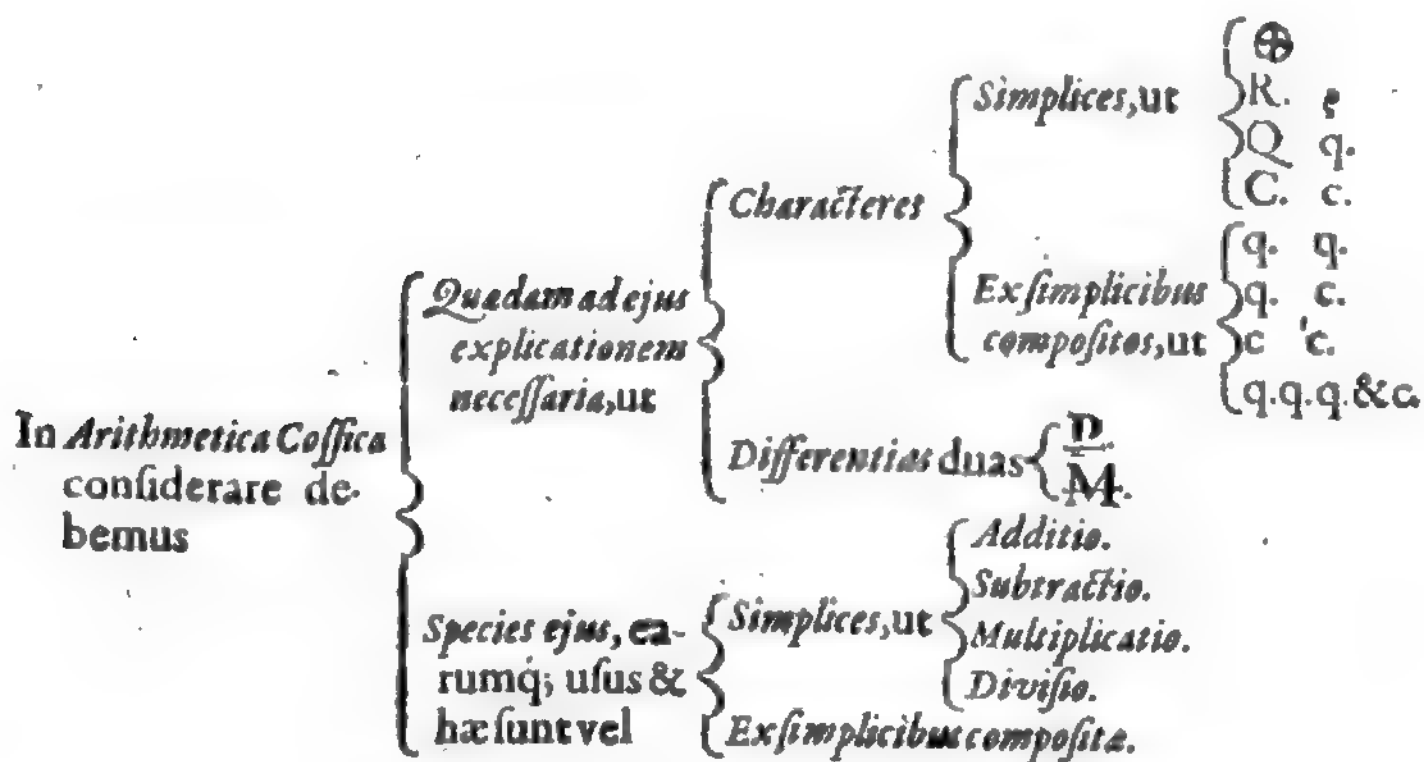 In Arithmetica Coſſica
conſiderare de-
bemus
Quædam ad ejus
explicationem
neceſſaria, ut
Characteres
Simplices, ut
⊕
R. e
Q q.
C. c.
Ex ſimplicibus
compoſitos, ut
q. q.
q. c.
c c.
q.q.q. &c.
Differentias duas
P.
M.
Species ejus, ea-
rumq́; uſus &
hæ ſunt vel
Simplices, ut
Additio.
Subtractio.
Multiplicatio.
Diviſio.
Ex ſimplicibus compoſitæ.